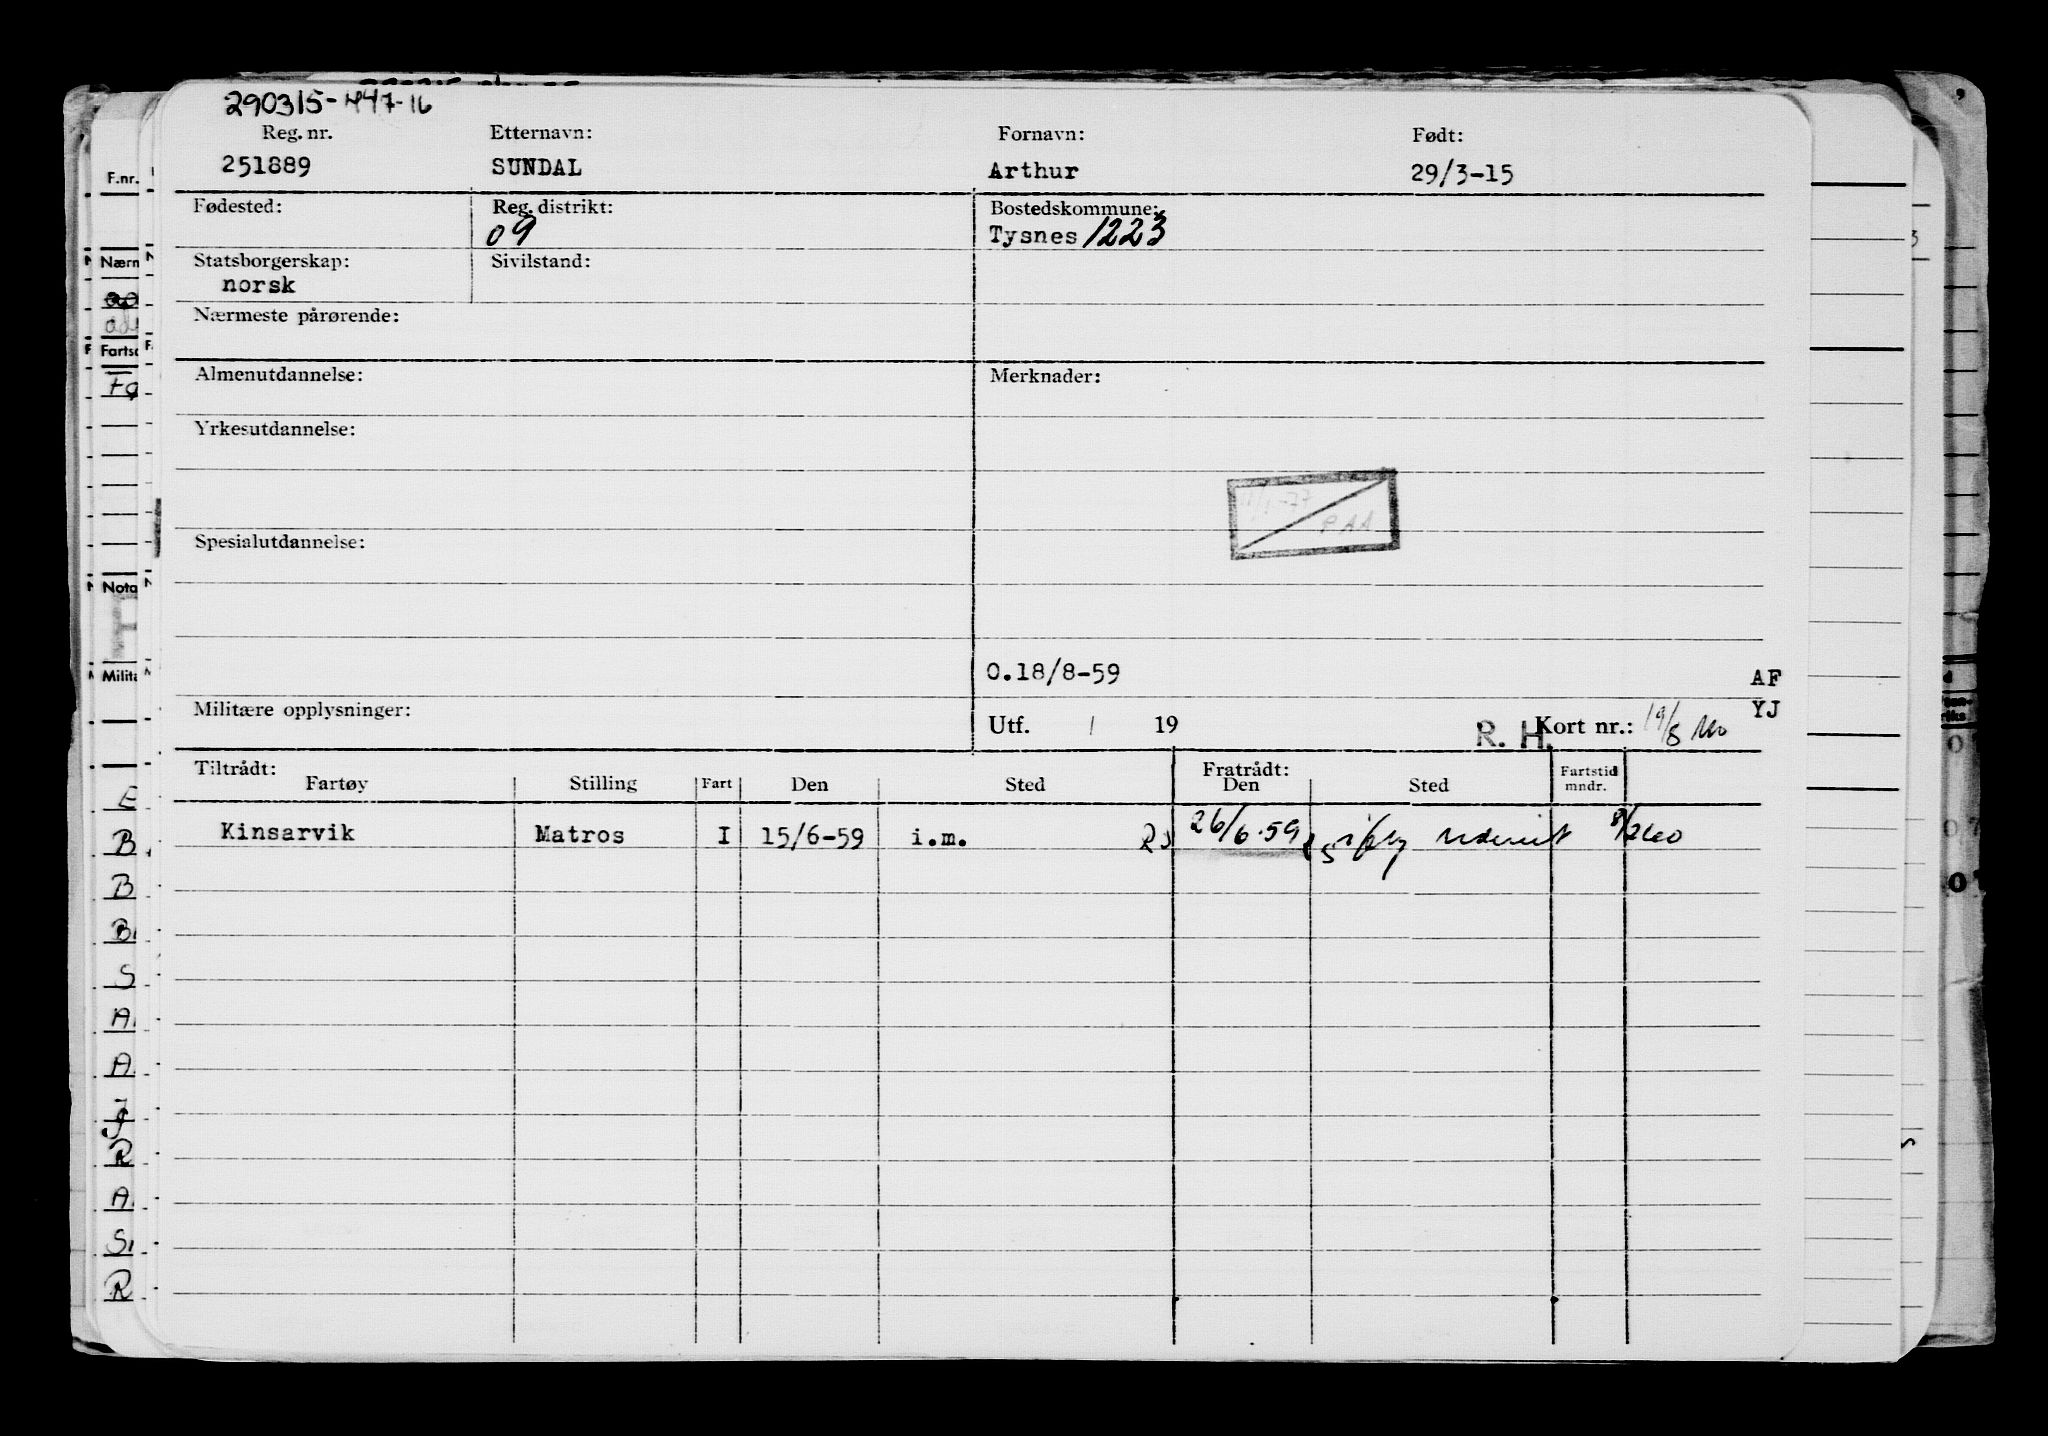 290315-447-16
Reg. nr. Etternavn: Fornavn: Født:
251889 SUNDAL Arthur 29/3-15
Fødested: Reg. distrikt: Bostedskommune:
09 Tysnes 1223
Statsborgerskap: Sivilstand:
norsk
Nærmeste pårørende:
Almenutdannelse: Merknader:
Yrkesutdannelse:
PAA
Spesialutdannelse:
0.18/8-59 AF
Militære opplysninger: YJ
Utf. / 19 R. H. Kort nr.: 19/8
Tiltrådt: Fratrådt:
Fartøy Stilling Fart Den Sted Den Sted Fartstid mndr.
Kinsarvik Matros I 15/6-59 i.m. 26/6-59
F.nr.
Nærm
Fartsd
Nota
Milita